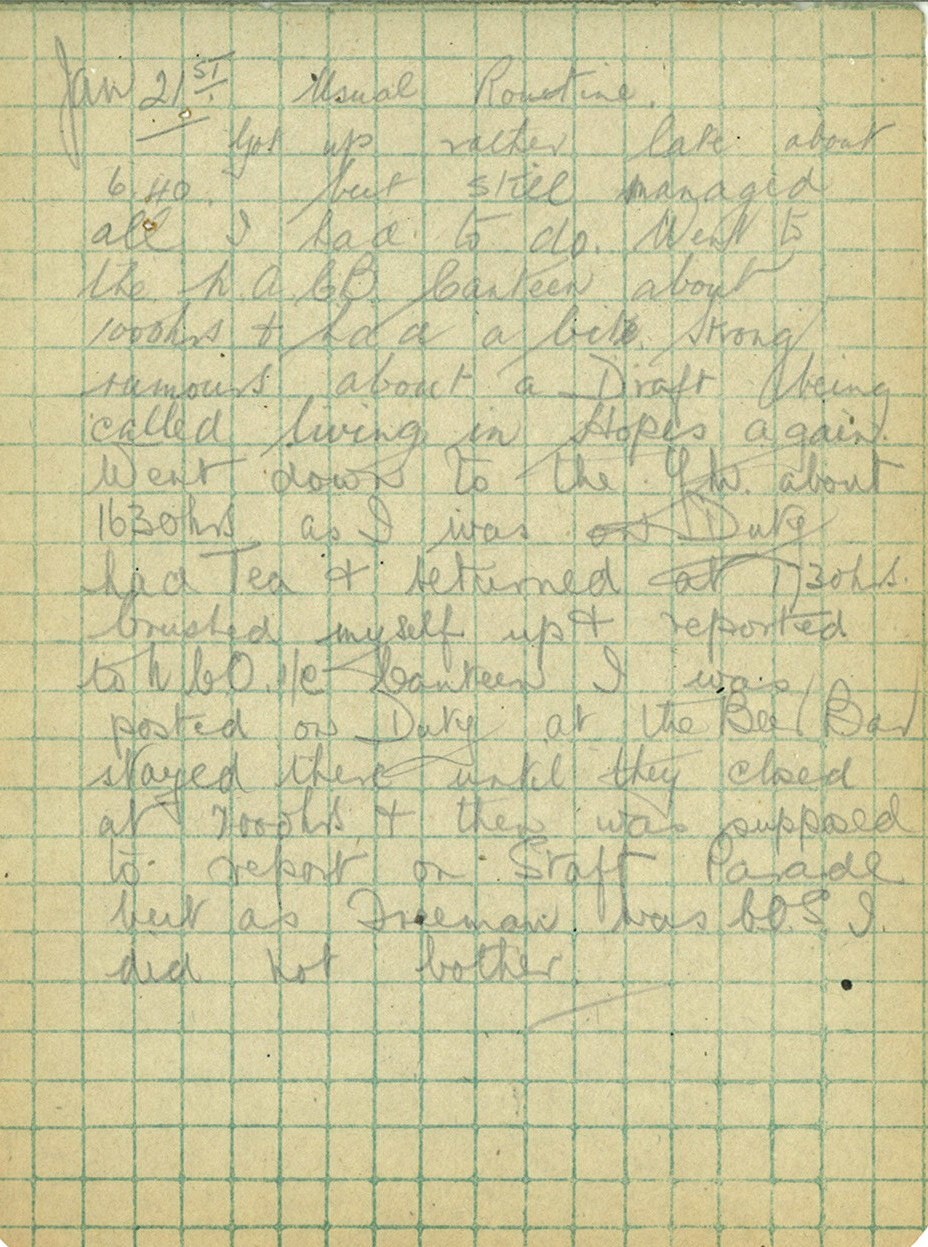 Jan 21ST Usual Routine.
Got up rather late about
6.40. but still managed
all I had to do. Went to
the N.A.C.B. Canteen about
1000hrs & had a bite. Strong
rumours about a Draft being
called living in Hopes again.
Went down to the Y.M. about
1630hrs as I was on Duty
had Tea & returned at 1730hrs.
brushed myself up & reported
to N.C.O. i/c Canteen I was
posted on Duty at the Beer Bar
stayed there until they closed
at & then was supposed
to report on Staff Parade
but as Freeman was C.O.S. I.
did not bother